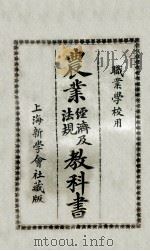 職業學校用
農業經濟及法規教科書
上海新學會社藏版